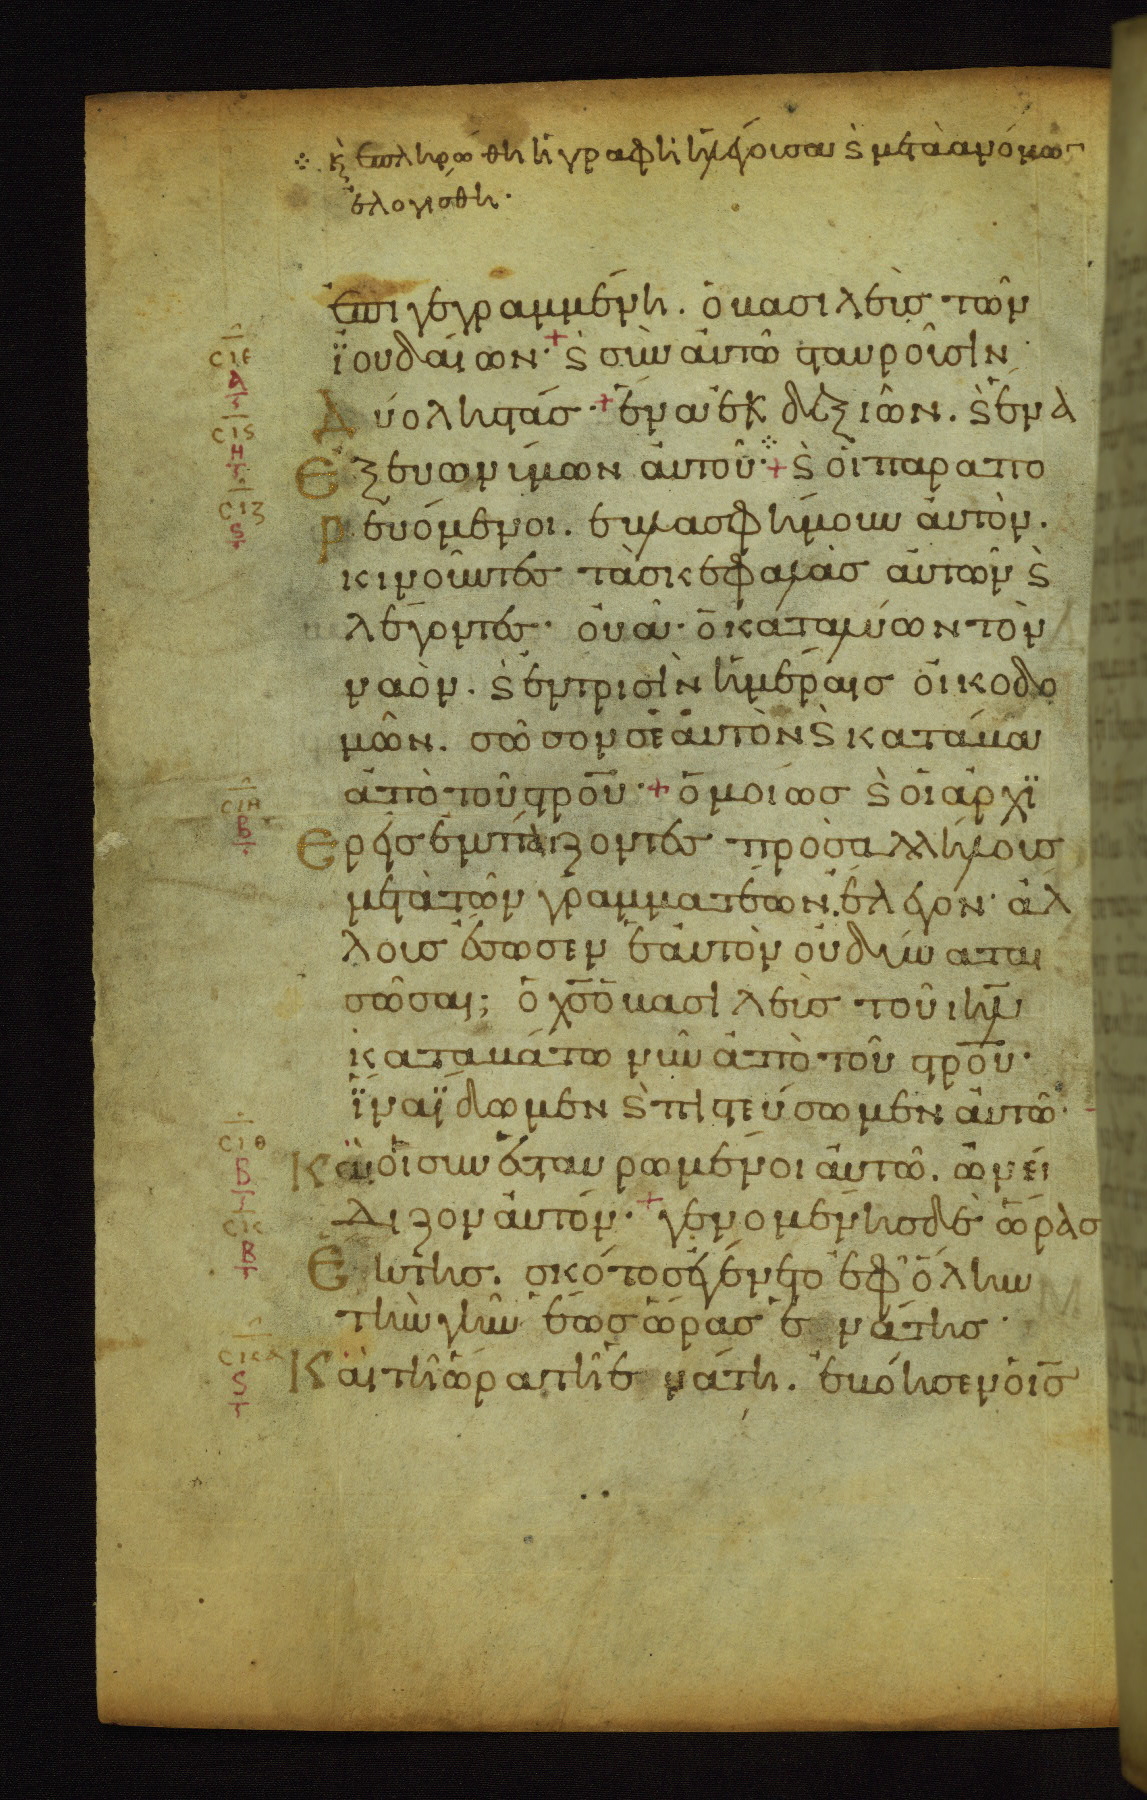 κ ἐπληρώθη ἡ γραφὴ ἡ λέγουσα ϛ μετὰ ἀνόμων
ἐλογίσθη·
ἐπιγεγραμμένη. ὁ βασιλεὺς τῶν
ϊουδαίων·+ ϛ σὺν ἀυτῶ σταυροῦσιν
Δύο ληστάσ·+ ἕνα ἐκ δεξιῶν. ϛ ἕνα
Ἐξ ευωνύμων ἀυτοῦ·+ ϛ οἱ παραπο
Ρευόμενοι. εβλασφήμουν ἀυτὸν.
κινοῦντες τὰσ κεφαλὰσ ἀυτῶν ϛ
λέγοντες· ὀυὰ· ὁ καταλύων τὸν
ναὸν. ϛ ἐν τρισὶν ἡμέραισ ὀικοδο
μῶν. σῶσον σεἀυτὸν ϛ κατάβα
ἀπὸ τοῦ στροῦ·+ ὁμοίωσ ϛ οἱ ἀρχϊ
Ερεῖσ ἐμπαίζοντες πρὸσ ἀλλήλουσ
μετὰ τῶν γραμματέων. ἔλεγον· ἄλ
λουσ ἔσωσεν ἑαυτὸν ὀυ δύναται
σῶσαι; ὁ χσ ὁ βασιλεὺσ τοῦ ιηλ
καταβάτω νῦν ἀπὸ τοῦ στροῦ·
ϊνα ϊδωμεν ϛ πιστεύσωμεν ἀυτῶ·
Κὰι ὁι συνεσταυρωμένοι ἀυτῶ. ὠνεί
Διζον ἀυτόν·+ γενομένησ δὲ ὥρασ
Ἕκτησ. σκότοσ ἐγένετο ἐφ ὅλην
τὴν γῆν ἕωσ ὥρασ ἐ νάτησ·
Κὰι τῆ ὥρα τῆ ἐ νάτη. ἐβόησεν ὁ ισ
σιε
Δ
σιϛ
Η
σιζ
ϛ
σιη
Β
σιθ
Β
σκ
Β
σκα
ϛ